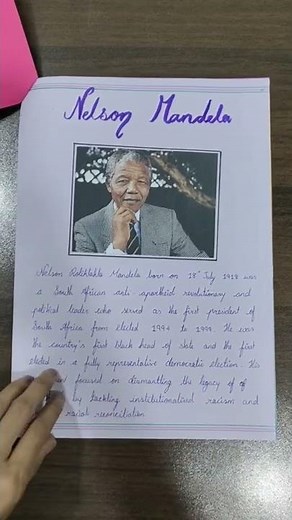 Nelson Mandela
Nelson Rolihlahla Mandela born on 18 July 1918 was
a South African anti apartheid revolutionary and
political leader who served as the first president of
South Africa from elected 1994 to 1999. He was
the country's first black head of state and the first
elected in a fully representative democratic election. His
focused on dismantling the legacy of of
by tackling institutionalised racism and
racial reconciliation